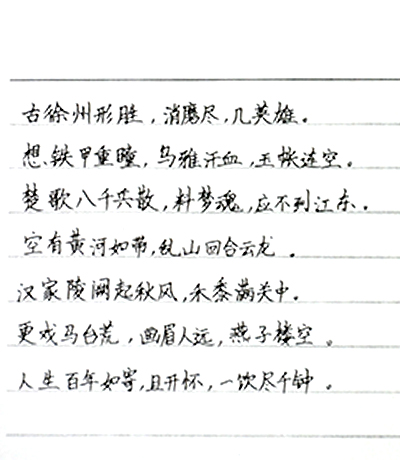 古徐州形胜，消磨尽，几英雄。
想铁甲重瞳，乌雅汗血，玉帐连空。
楚歌八千兵散，料梦魂，应不到江东。
空有黄河如带，乱山回合云龙。
汉家陵阙起秋风，禾黍满关中。
更戏马台荒，画眉人远，燕子楼空。
人生百年如寄，且开怀，一饮尽千钟。